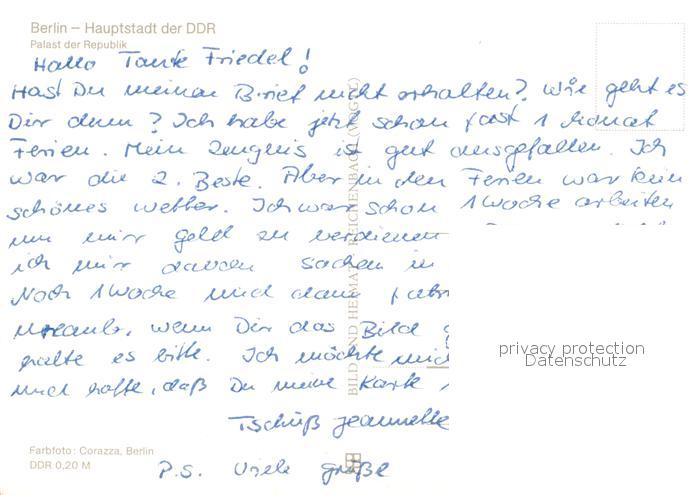 Berlin – Hauptstadt der DDR
Palast der Republik
Hallo Tante Friedel!
Hast Du meinen Brief nicht erhalten? Wie geht es
Dir denn? Ich habe jetzt schon fast 1 Monat
Ferien. Mein Zeugnis ist gut ausgefallen. Ich
war die 2. Beste. Aber in den Ferien war kein
schönes Wetter. Ich war schon 1 Woche arbeiten
um mir geld zu verdienen
ich mir davon sachen
Noch 1 Woche und dann
Urlaub, wenn Dir das Bild
halte es bitte. Ich möchte
und hoffe, daß Du meine Karte
Tschüß Jeannette
P.S. Viele grüße
BILD UND HEIMAT REICHENBACH (VOGTL)
privacy protection
Datenschutz
Farbfoto: Corazza, Berlin
DDR 0,20 M